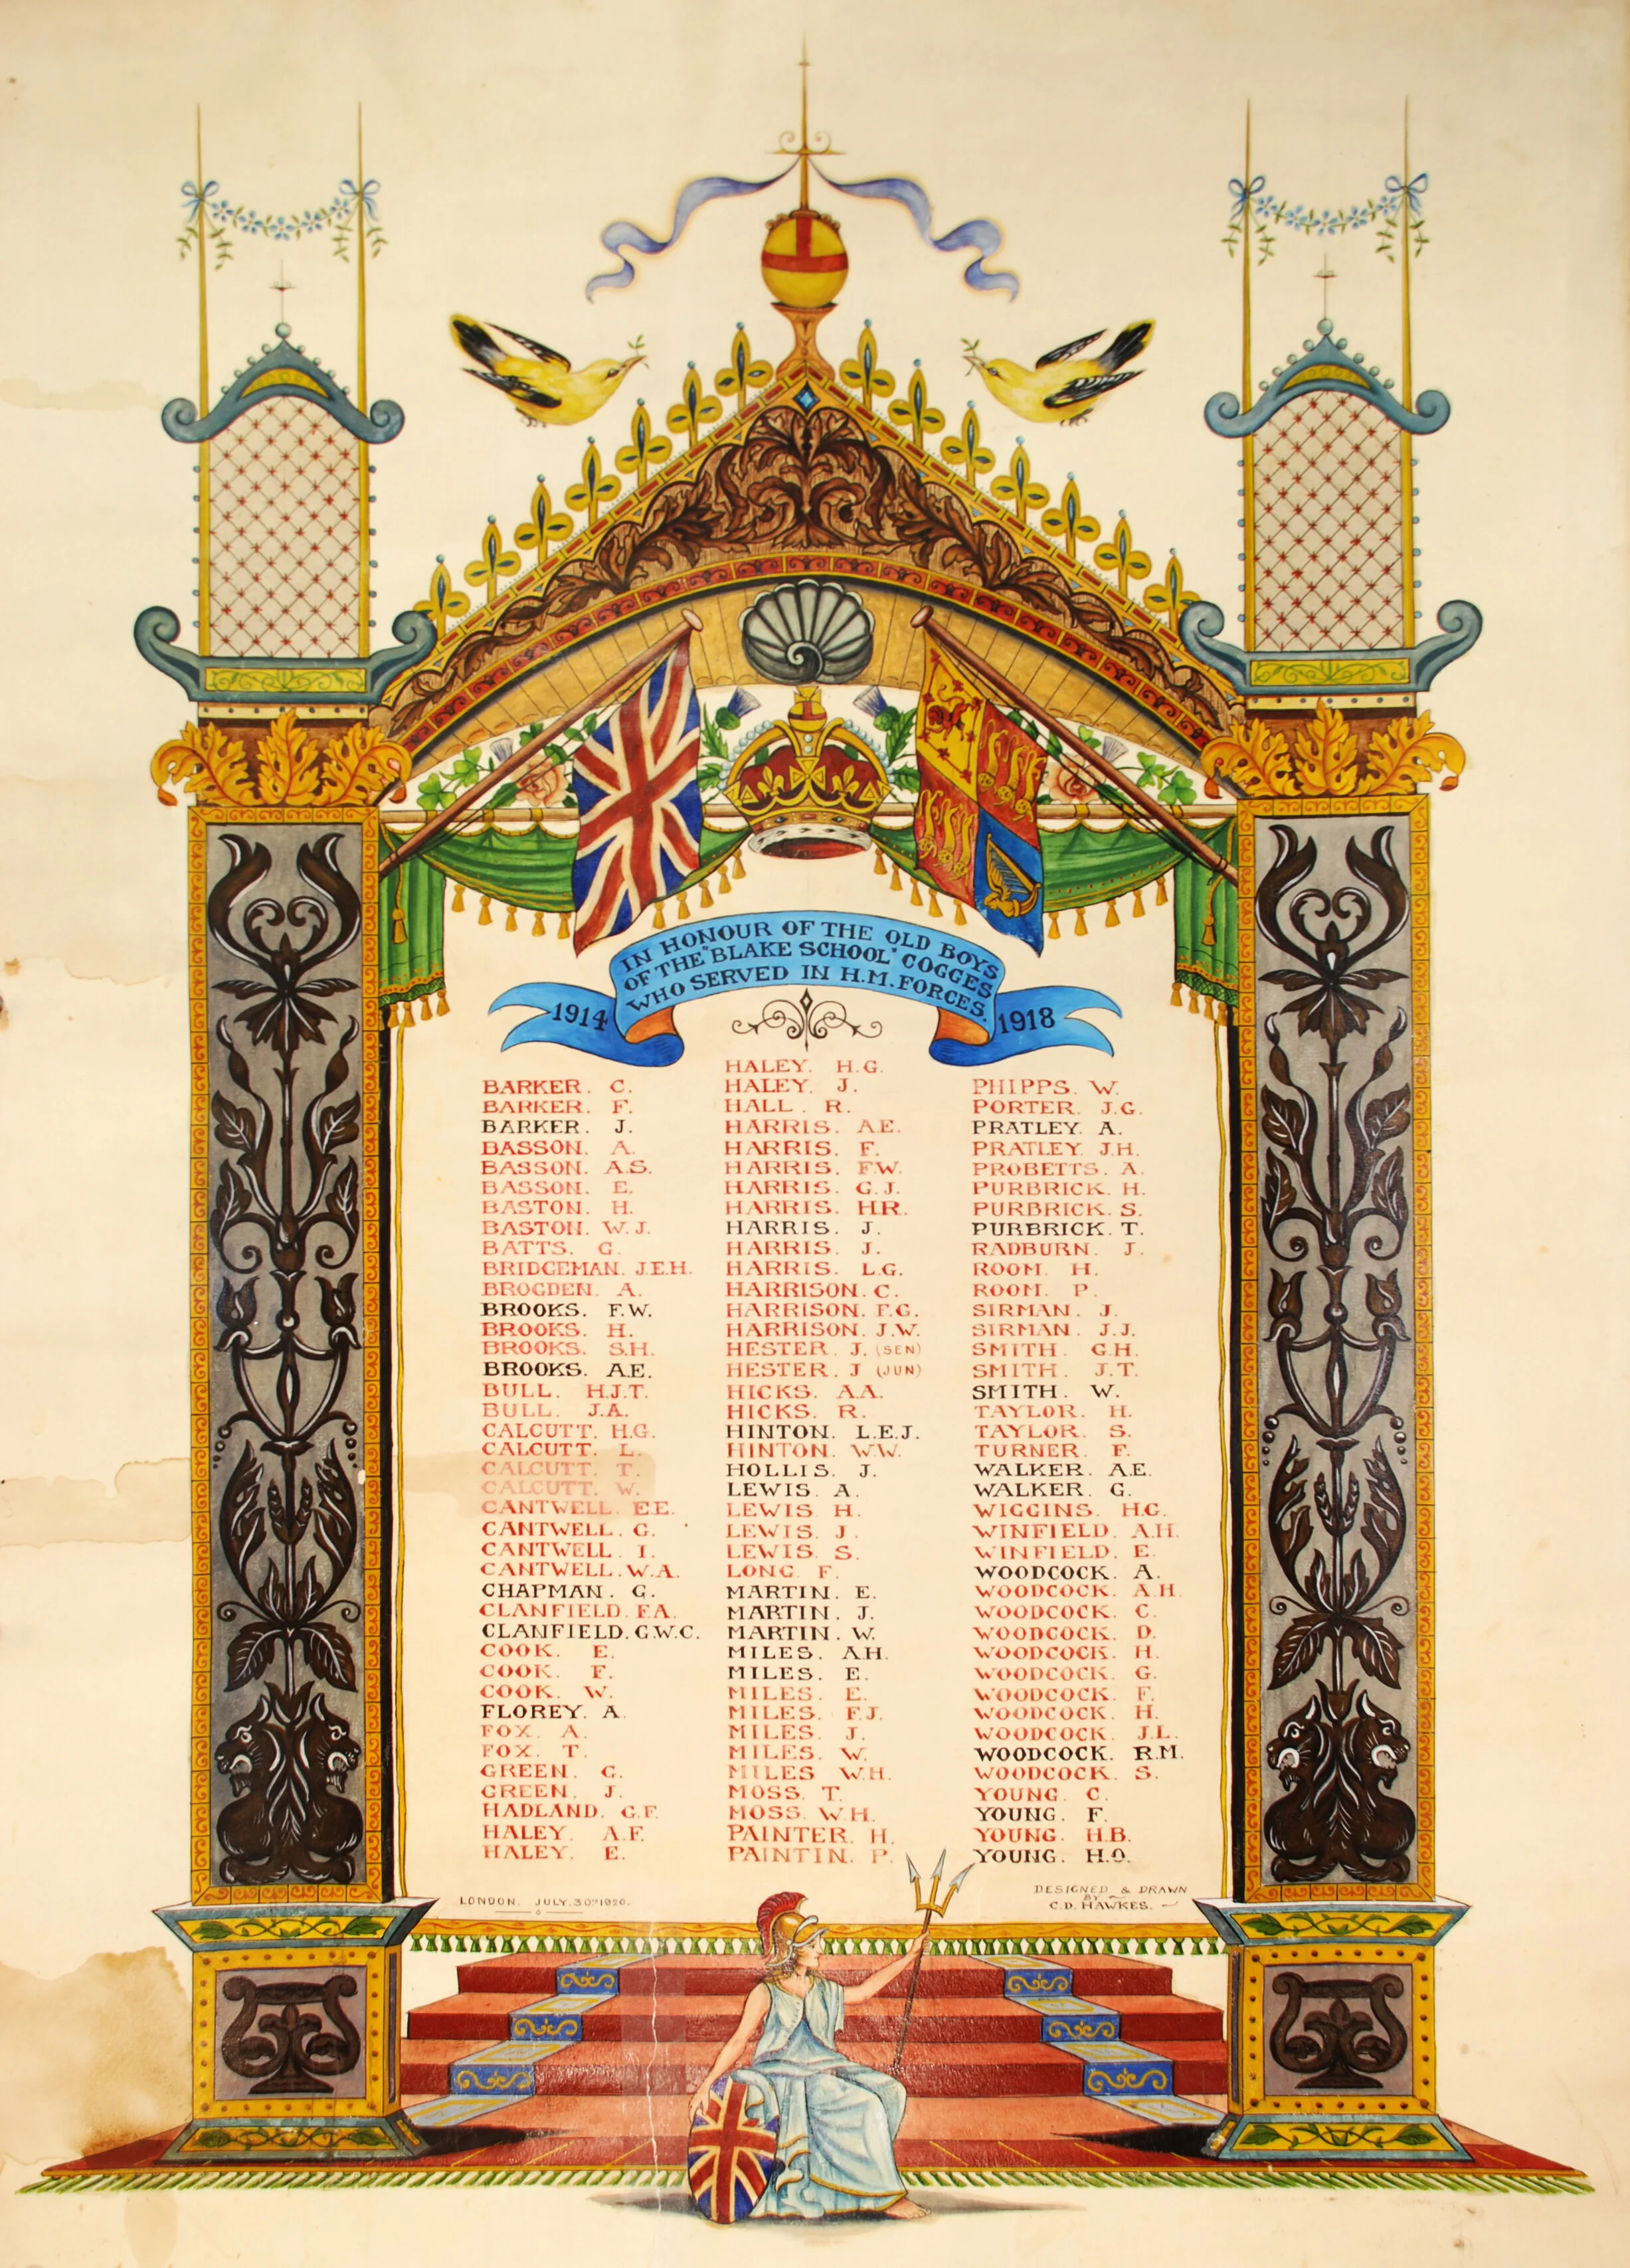 IN HONOUR OF THE OLD BOYS
OF THE "BLAKE SCHOOL" COGGES
WHO SERVED IN H.M. FORCES.
1914
1918
BARKER. C.
BARKER. F.
BARKER. J.
BASSON. A.
BASSON. A.S.
BASSON. E.
BASTON. H.
BASTON. W.J.
BATTS. G.
BRIDGEMAN. J.E.H.
BROGDEN. A.
BROOKS. F.W.
BROOKS. H.
BROOKS. S.H.
BROOKS. A.E.
BULL. H.J.T.
BULL. J.A.
CALCUTT. H.G.
CALCUTT. L.
CALCUTT. T.
CALCUTT. W.
CANTWELL. E.E.
CANTWELL. G.
CANTWELL. I.
CANTWELL. W.A.
CHAPMAN. G.
CLANFIELD. F.A.
CLANFIELD. G.W.C.
COOK. E.
COOK. F.
COOK. W.
FLOREY. A.
FOX. A.
FOX. T.
GREEN. G.
GREEN. J.
HADLAND. G.F.
HALEY. A.F.
HALEY. E.
HALEY. H.G.
HALEY. J.
HALL. R.
HARRIS. A.E.
HARRIS. F.
HARRIS. F.W.
HARRIS. G.J.
HARRIS. H.R.
HARRIS. J.
HARRIS. J.
HARRIS. L.G.
HARRISON. C.
HARRISON. F.G.
HARRISON. J.W.
HESTER. J. (SEN)
HESTER. J (JUN)
HICKS. A.A.
HICKS. R.
HINTON. L.E.J.
HINTON. W.W.
HOLLIS. J.
LEWIS. A.
LEWIS H.
LEWIS. J.
LEWIS. S.
LONG. F.
MARTIN. E.
MARTIN. J.
MARTIN. W.
MILES. A.H.
MILES. E.
MILES. E.
MILES. F.J.
MILES. J.
MILES. W.
MILES W.H.
MOSS. T.
MOSS. W.H.
PAINTER. H.
PAINTIN. P.
PHIPPS. W.
PORTER. J.G.
PRATLEY. A.
PRATLEY. J.H.
PROBETTS. A.
PURBRICK. H.
PURBRICK. S.
PURBRICK. T.
RADBURN. J.
ROOM. H.
ROOM. P.
SIRMAN. J.
SIRMAN. J.J.
SMITH. G.H.
SMITH. J.T.
SMITH. W.
TAYLOR. H.
TAYLOR. S.
TURNER. F.
WALKER. A.E.
WALKER. G.
WIGGINS. H.G.
WINFIELD. A.H.
WINFIELD. E.
WOODCOCK. A.
WOODCOCK. A.H.
WOODCOCK. C.
WOODCOCK. D.
WOODCOCK. H.
WOODCOCK. G.
WOODCOCK. F.
WOODCOCK. H.
WOODCOCK. J.L.
WOODCOCK. R.M.
WOODCOCK. S.
YOUNG. C.
YOUNG. F.
YOUNG. H.B.
YOUNG. H.O.
LONDON. JULY. 30TH 1920.
DESIGNED & DRAWN
BY
C.D. HAWKES.